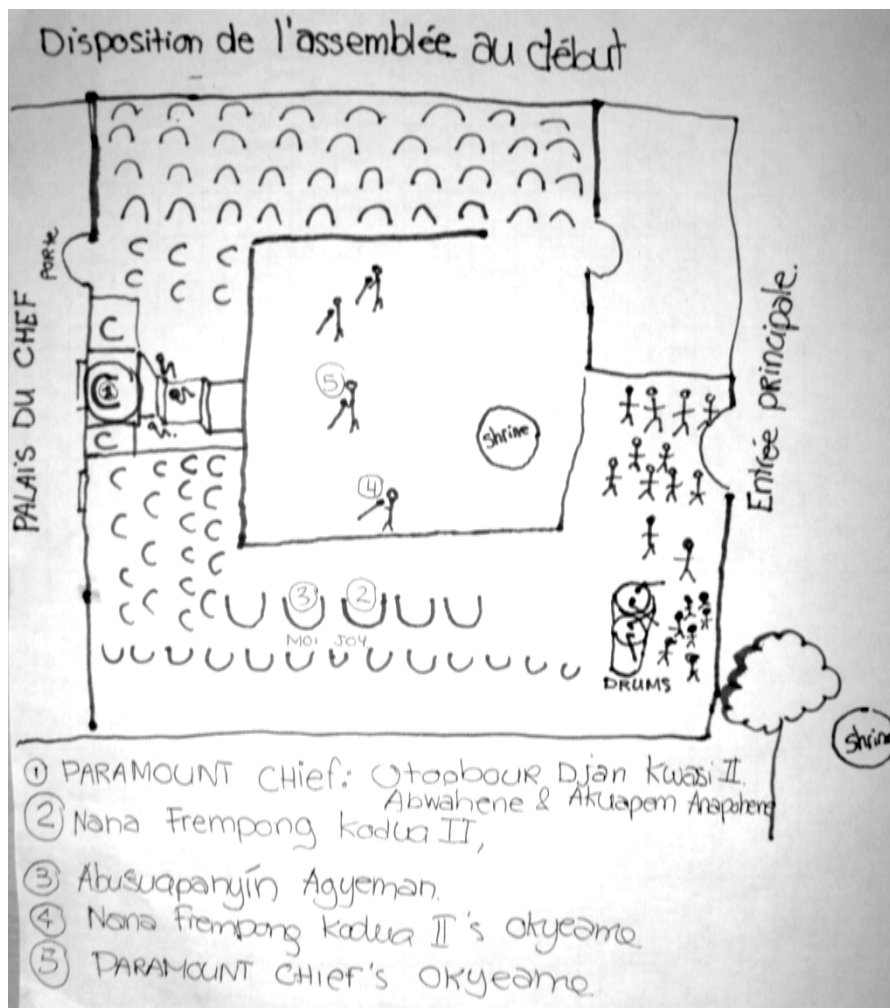 Disposition de l'assemblée au début
PORTE
PALAIS DU CHEF
1
5
Shrine
4
Entrée principale.
3
2
MOI JOY
DRUMS
Shrine
1 PARAMOUNT Chief: Otopbour Djan Kwasi II.
Abwahene & Akuapem Anapohene
2 Nana Frempong Kodua II,
3 Abusuapanyín Agyeman.
4 Nana Frempong Kodua II's Okyeame
5 PARAMOUNT CHIEF'S OKYEAME